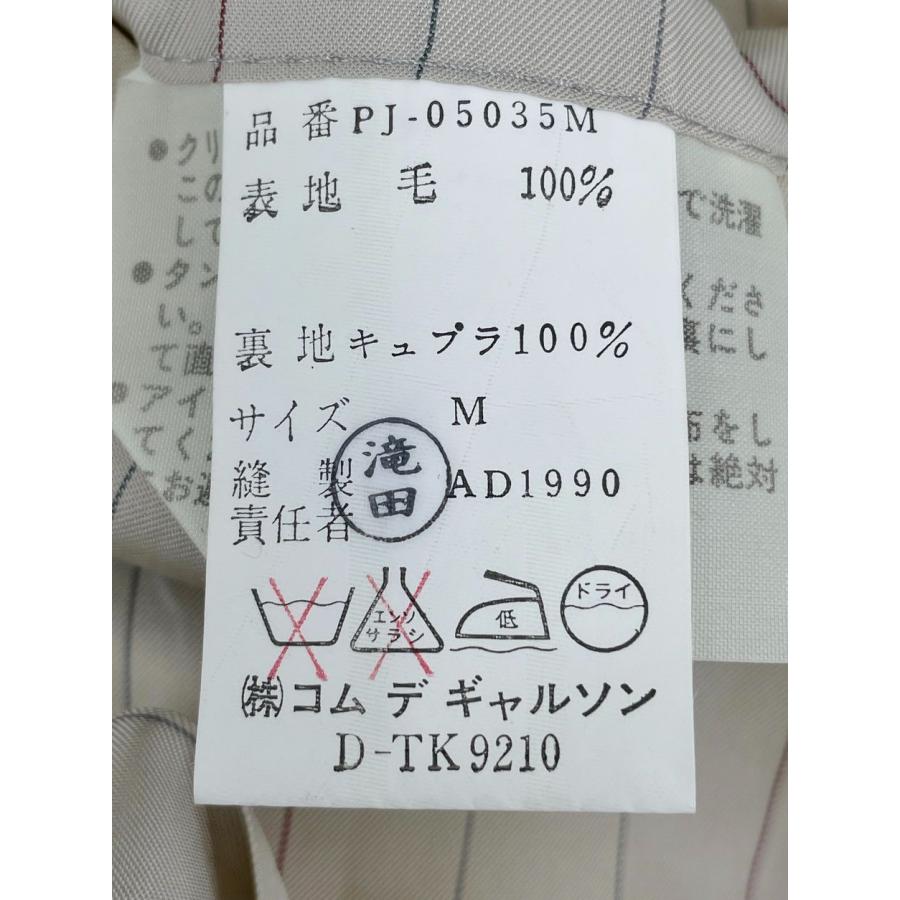 品番 PJ-05035M
表地 毛 100%
裏地 キュプラ 100%
サイズ M
縫製 AD1990
責任者
滝田
エンソ
サラシ
低
ドライ
㈱コム デ ギャルソン
D-TK9210
● クリ
この
して
で洗濯
● タン
い。
て直
くださ
裏にし
● アイ
てく
布をし
は絶対